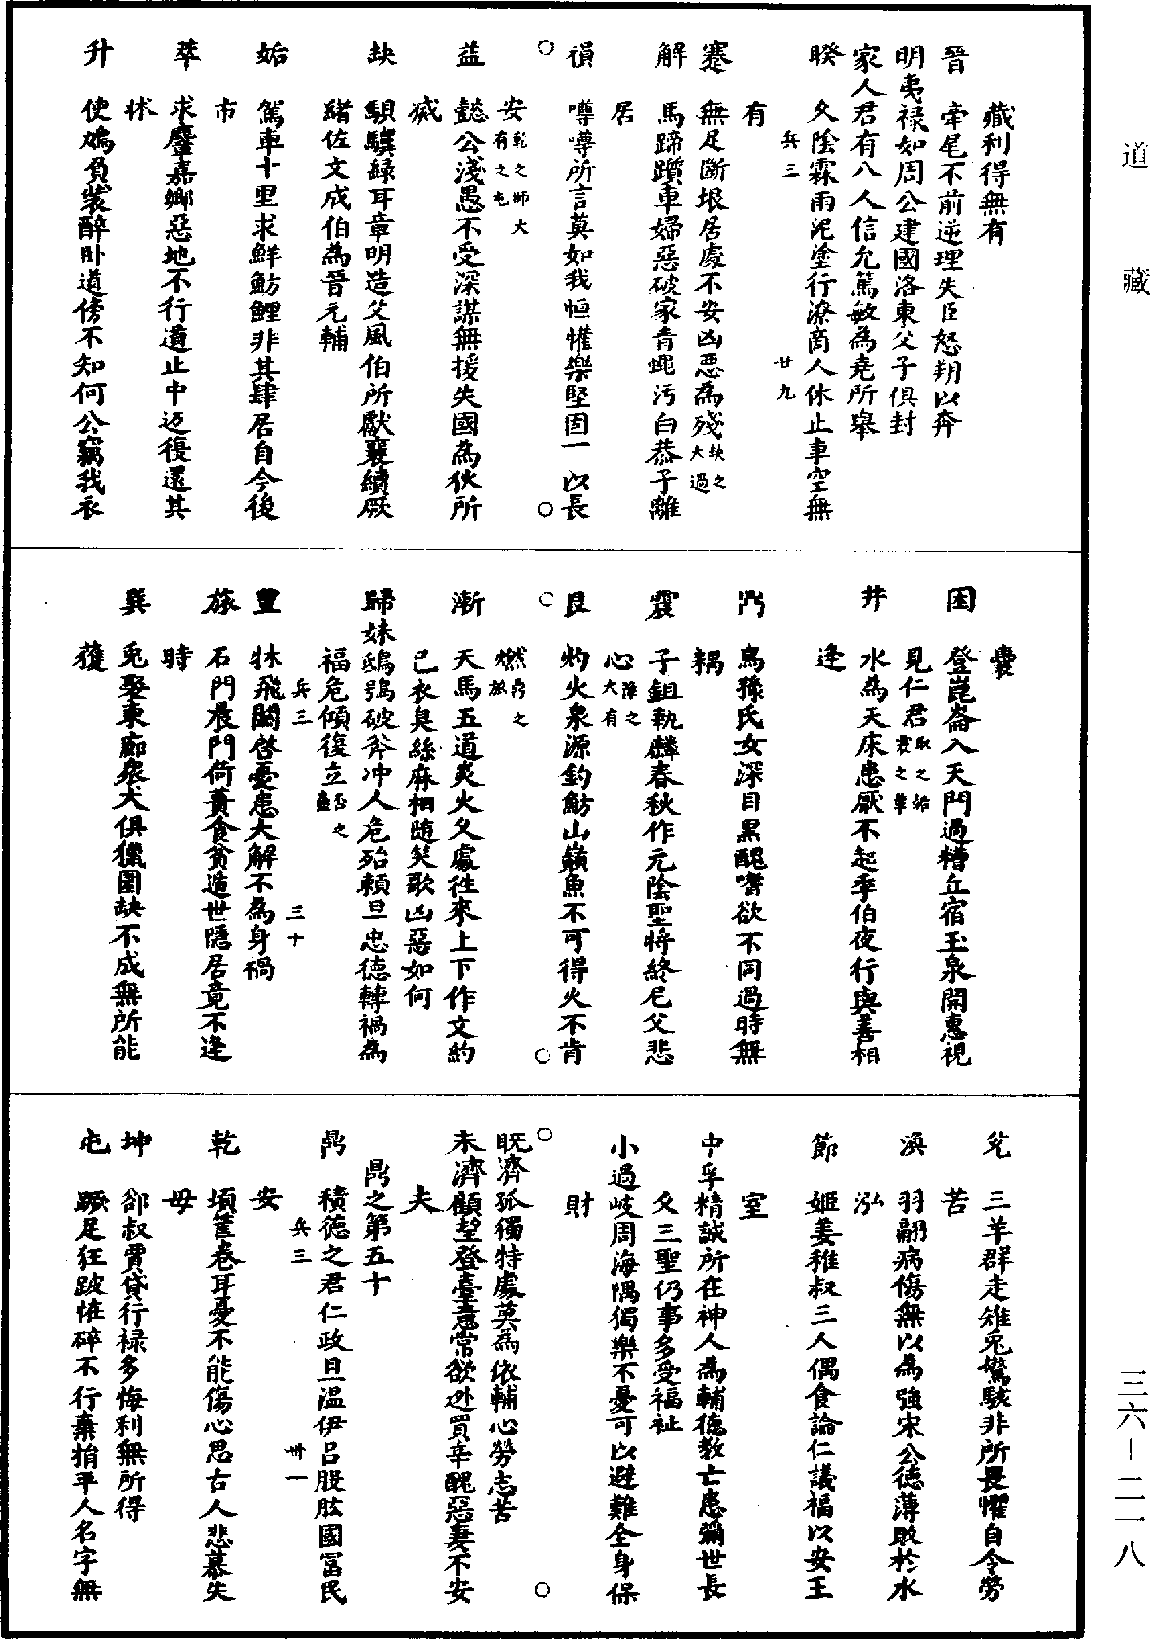 道藏
藏利得無有
晉　牽尾不前逆理失臣怒朔以奔
明夷祿如周公建國洛東父子俱封
家人君有八人信允篤敏為堯所舉
睽　久陰霖雨泥塗行潦商人休止車空無
有　兵三　廿九
蹇　無足斷垠居處不安凶惡為殘缺之大過
解　馬蹄躓車婦惡破家青蠅污白恭子離
居
損　噂噂所言莫如我恒懽樂堅固一以長
安乾之師大有之屯
益　懿公淺愚不受深謀無援失國為伙所
滅
缺　騏驥綠耳章明造父風伯所獻襄續厥
緒佐文成伯為晉元輔
姤　駕車十里求鮮魴鯉非其肆居自令後
市
萃　求麞嘉鄉惡地不行道止中迄復還其
牀
升　使媯負裝醉卧道傍不知何公竊我衣
囊
困　登崑崙入天門過糟丘宿玉泉開惠視
見仁君
井　水為天床患厭不起季伯夜行與善相
逢
鼎　烏孫氏女深目黑醜嗜欲不同過時無
耦
震　子鉏執麟春秋作元陰聖將終尼父悲
心
艮　灼火泉源釣魴山巔魚不可得火不肯
燃
漸　天馬五道炎火久處往來上下作文約
己衣臭絲麻相隨笑歌凶惡如何
歸妹鴟鴞破斧冲人危殆賴旦忠德轉禍為
福危傾復立
兵三　三十
豐　牀飛闢啓憂患大解不為身禍
旅　石門晨門荷蕢食貧遁世隱居竟不逢
時
巽　兔聚東郭衆犬俱獵圍缺不成無所能
獲
兌　三羊群走雉兔驚駭非所畏懼自令勞
苦
渙　羽翮病傷無以為強宋公德薄敗於水
泓
節　姬姜稚叔三人偶食論仁議福以安王
室
中孚精誠所在神人為輔德教亡患彌世長
久三聖仍事多受福祉
小過岐周海隅獨樂不憂可以避難全身保
財
既濟孤獨特處莫為依輔心勞志苦
未濟顧望登臺意常欲逃買辛醜惡妻不安
夫
鼎之第五十
鼎　積德之君仁政且溫伊呂股肱國冨民
安　兵三　卅一
乾　頃筐卷耳憂不能傷心思古人悲慕失
母
坤　郤叔賈貸行祿多悔利無所得
屯　蹶足狂跛恠碎不行棄捐平人名字無
三六－二一八